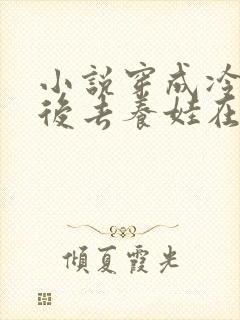 小說穿成冷
後去養娃在
傾夏霞光